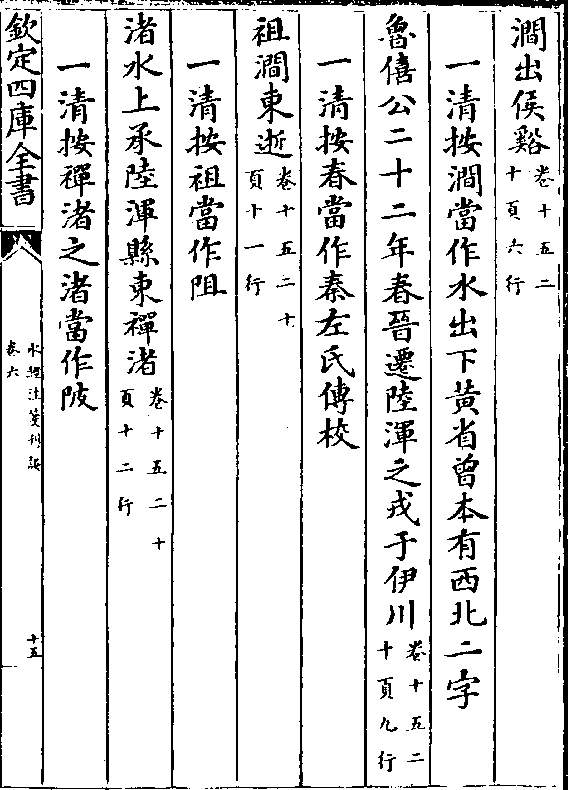 澗出侯谿卷十五二十頁六行
一清按澗當作水出下黃省曾本有西北二字
魯僖公二十二年春晉遷陸渾之戎于伊川卷十五二十頁九行
一清按春當作秦左氏傳校
祖澗東逝卷十五二十頁十一行
一清按祖當作阻
渚水上承陸渾縣東禪渚卷十五二十頁十二行
一清按禪渚之渚當作陂
欽定四庫全書
水經注箋刊誤
卷六
十五